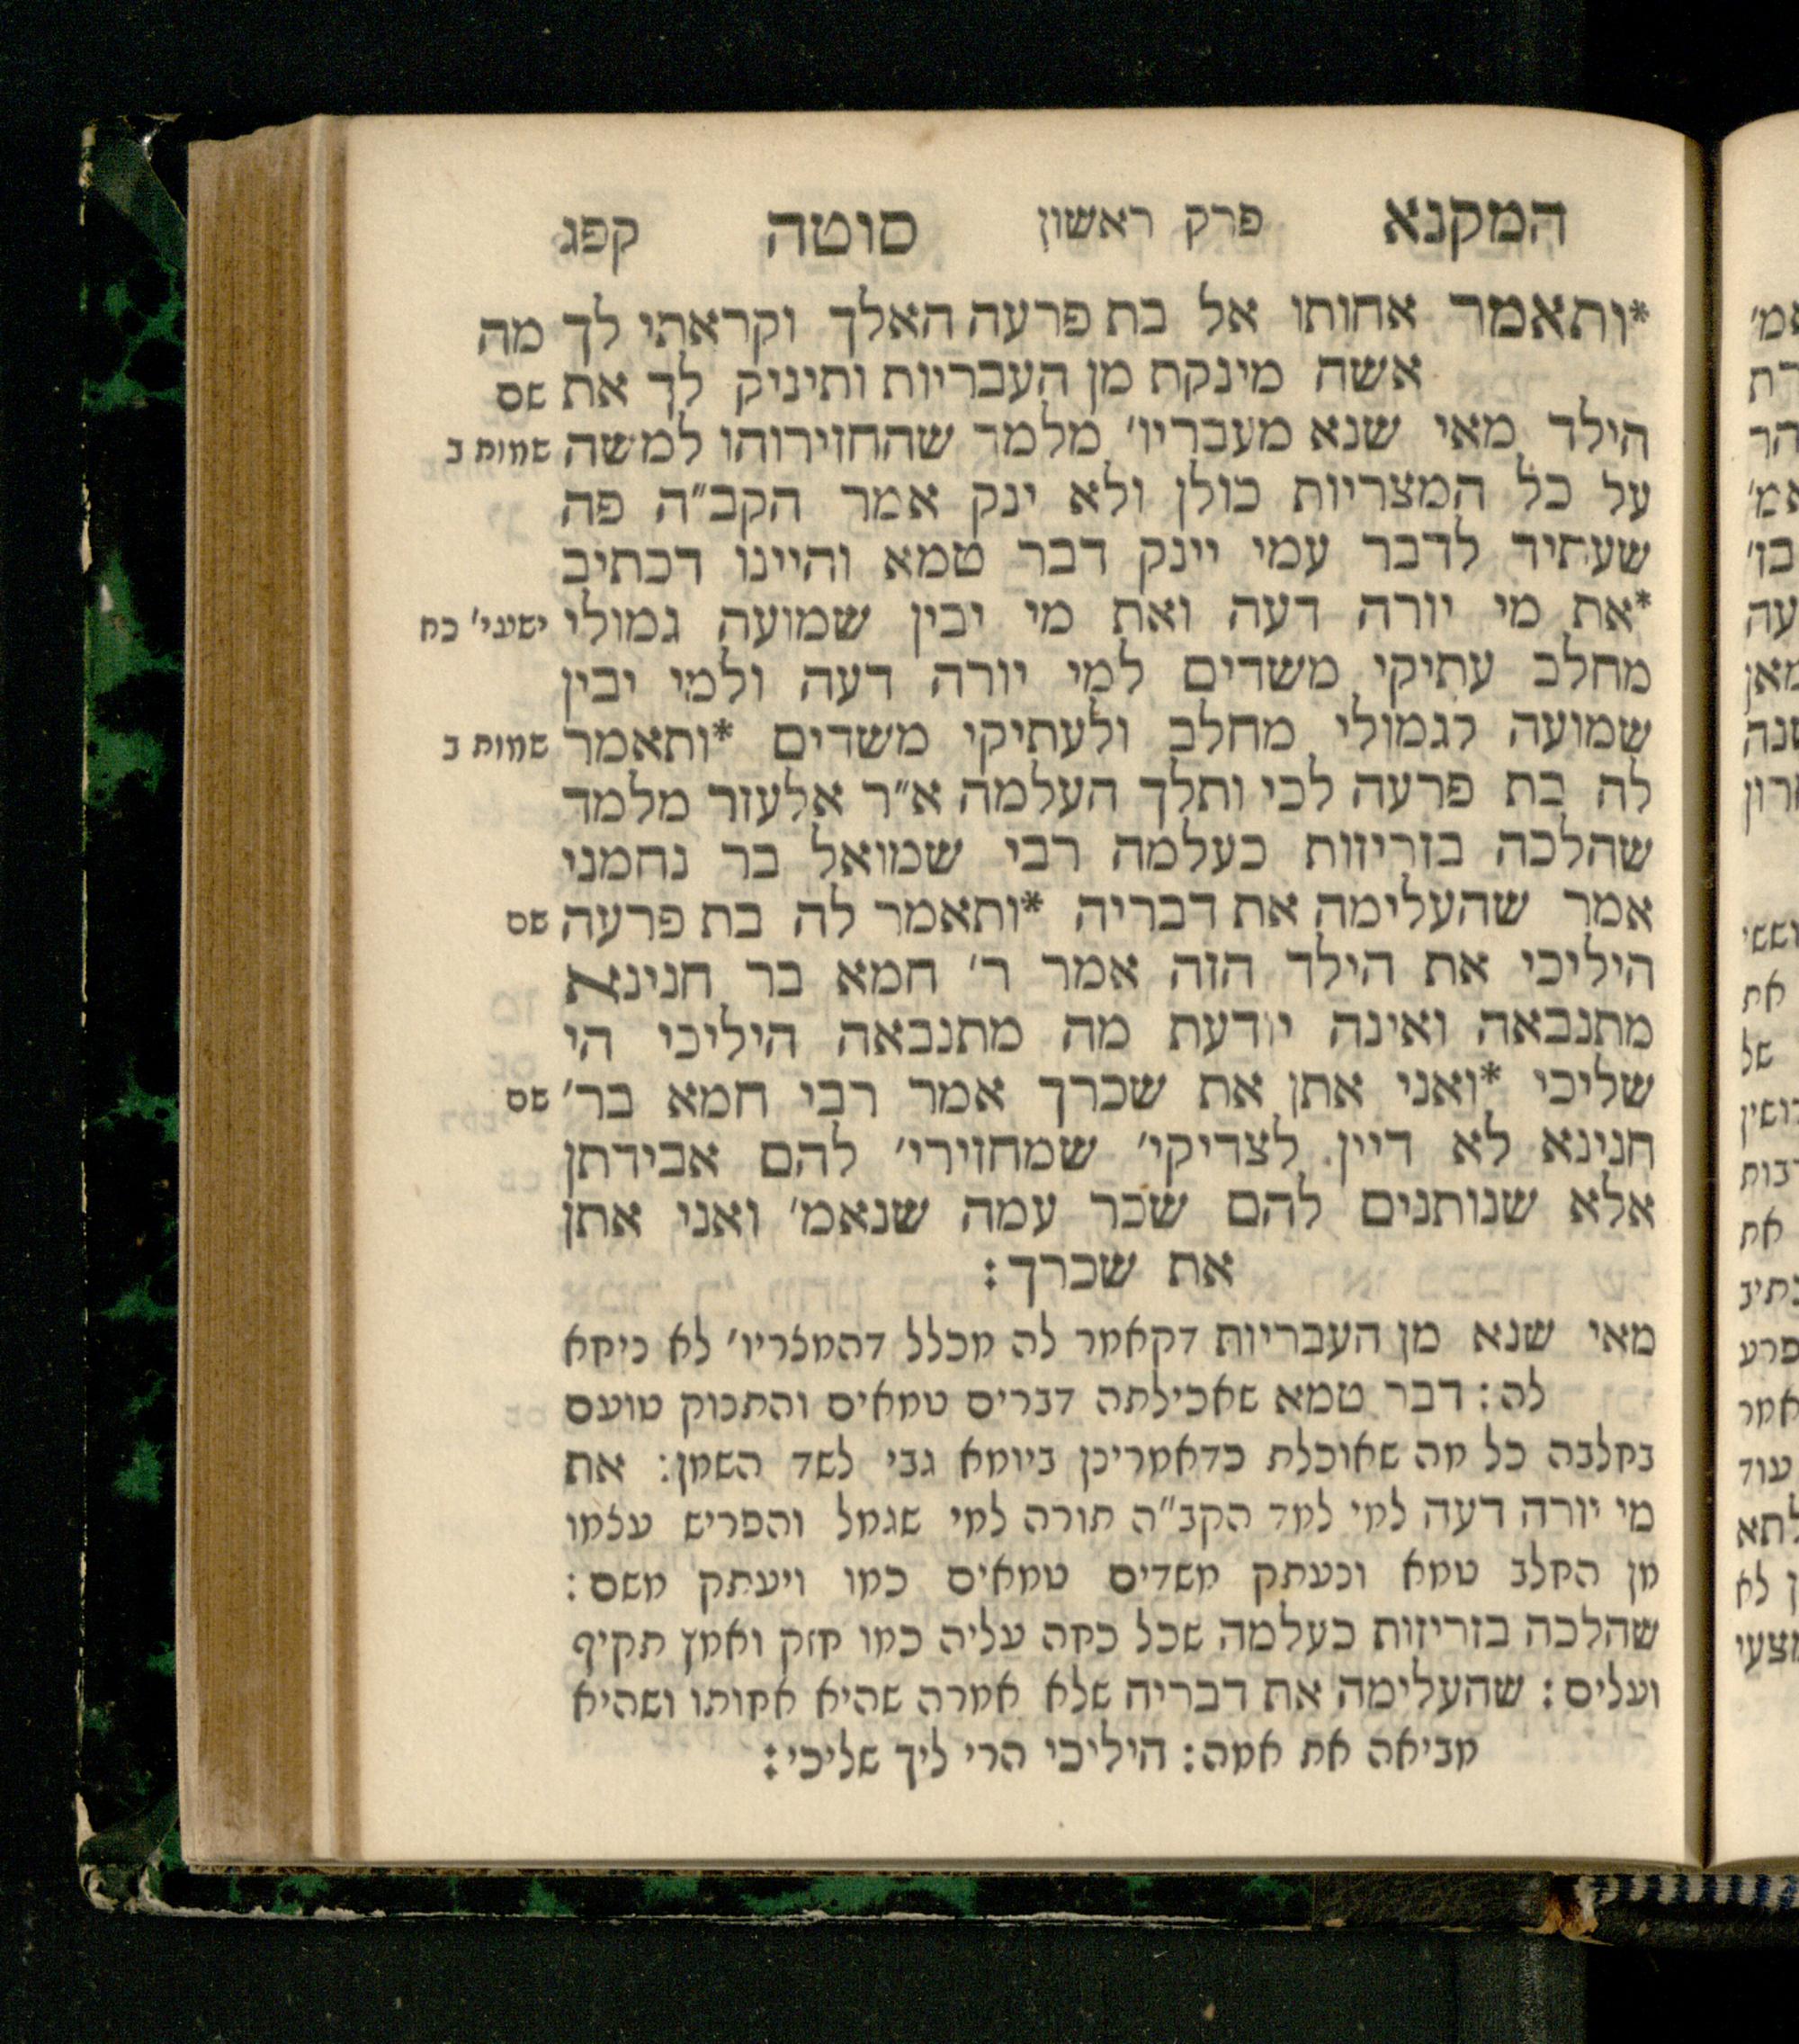 המקנא פרק ראשון סוטה קפג
*ותאמר אחותו אל בת פרעה האלך וקראתי לך מה
אשה מינקת מן העבריות ותיניק לך את שם
הילד מאי שנא מעבריו׳ מלמד שהחזירוהו למשה שמות ב
על כל המצריות כולן ולא ינק אמר הקב״ה פה
שעתיד לדבר עמי יינק דבר טמא והיינו דכתיב
*את מי יורה דעה ואת מי יבין שמועה גמולי ישעי׳ כח
מחלב עתיקי משדים למי יורה דעה ולמי יבין
שמועה לגמולי מחלב ולעתיקי משדים *ותאמר שמות ב
לה בת פרעה לכי ותלך העלמה א״ר אלעזר מלמד
שהלכה בזריזות כעלמה רבי שמואל בר נחמני
אמר שהעלימה את דבריה *ותאמר לה בת פרעה שם
היליכי את הילד הזה אמר ר׳ חמא בר חנינא
מתנבאה ואינה יודעת מה מתנבאה היליכי הי
שליכי *ואני אתן את שכרך אמר רבי חמא בר׳ שם
חנינא לא דיין לצדיקי׳ שמחזירי׳ להם אבידתן
אלא שנותנים להם שכר עמה שנאמ׳ ואני אתן
את שכרך:
מאי שנא מן העבריות דקאמר לה מכלל דהמצריו׳ לא ניחא
לה: דבר טמא שאכילתה דברים טמאים והתנוק טועם
בחלבה כל מה שאוכלת כדאמרינן ביומא גבי לשד השמן: את
מי יורה דעה למי למד הקב״ה תורה למי שגמל והפריש עצמו
מן החלב טמא ונעתק משדים טמאים כמו ויעתק משם:
שהלכה בזריזות כעלמה שכל כחה עליה כמו חזק ואמץ תקיף
ועלים: שהעלימה את דבריה שלא אמרה שהיא אחותו ושהיא
מביאה את אמה: היליכי הרי ליך שליכי: